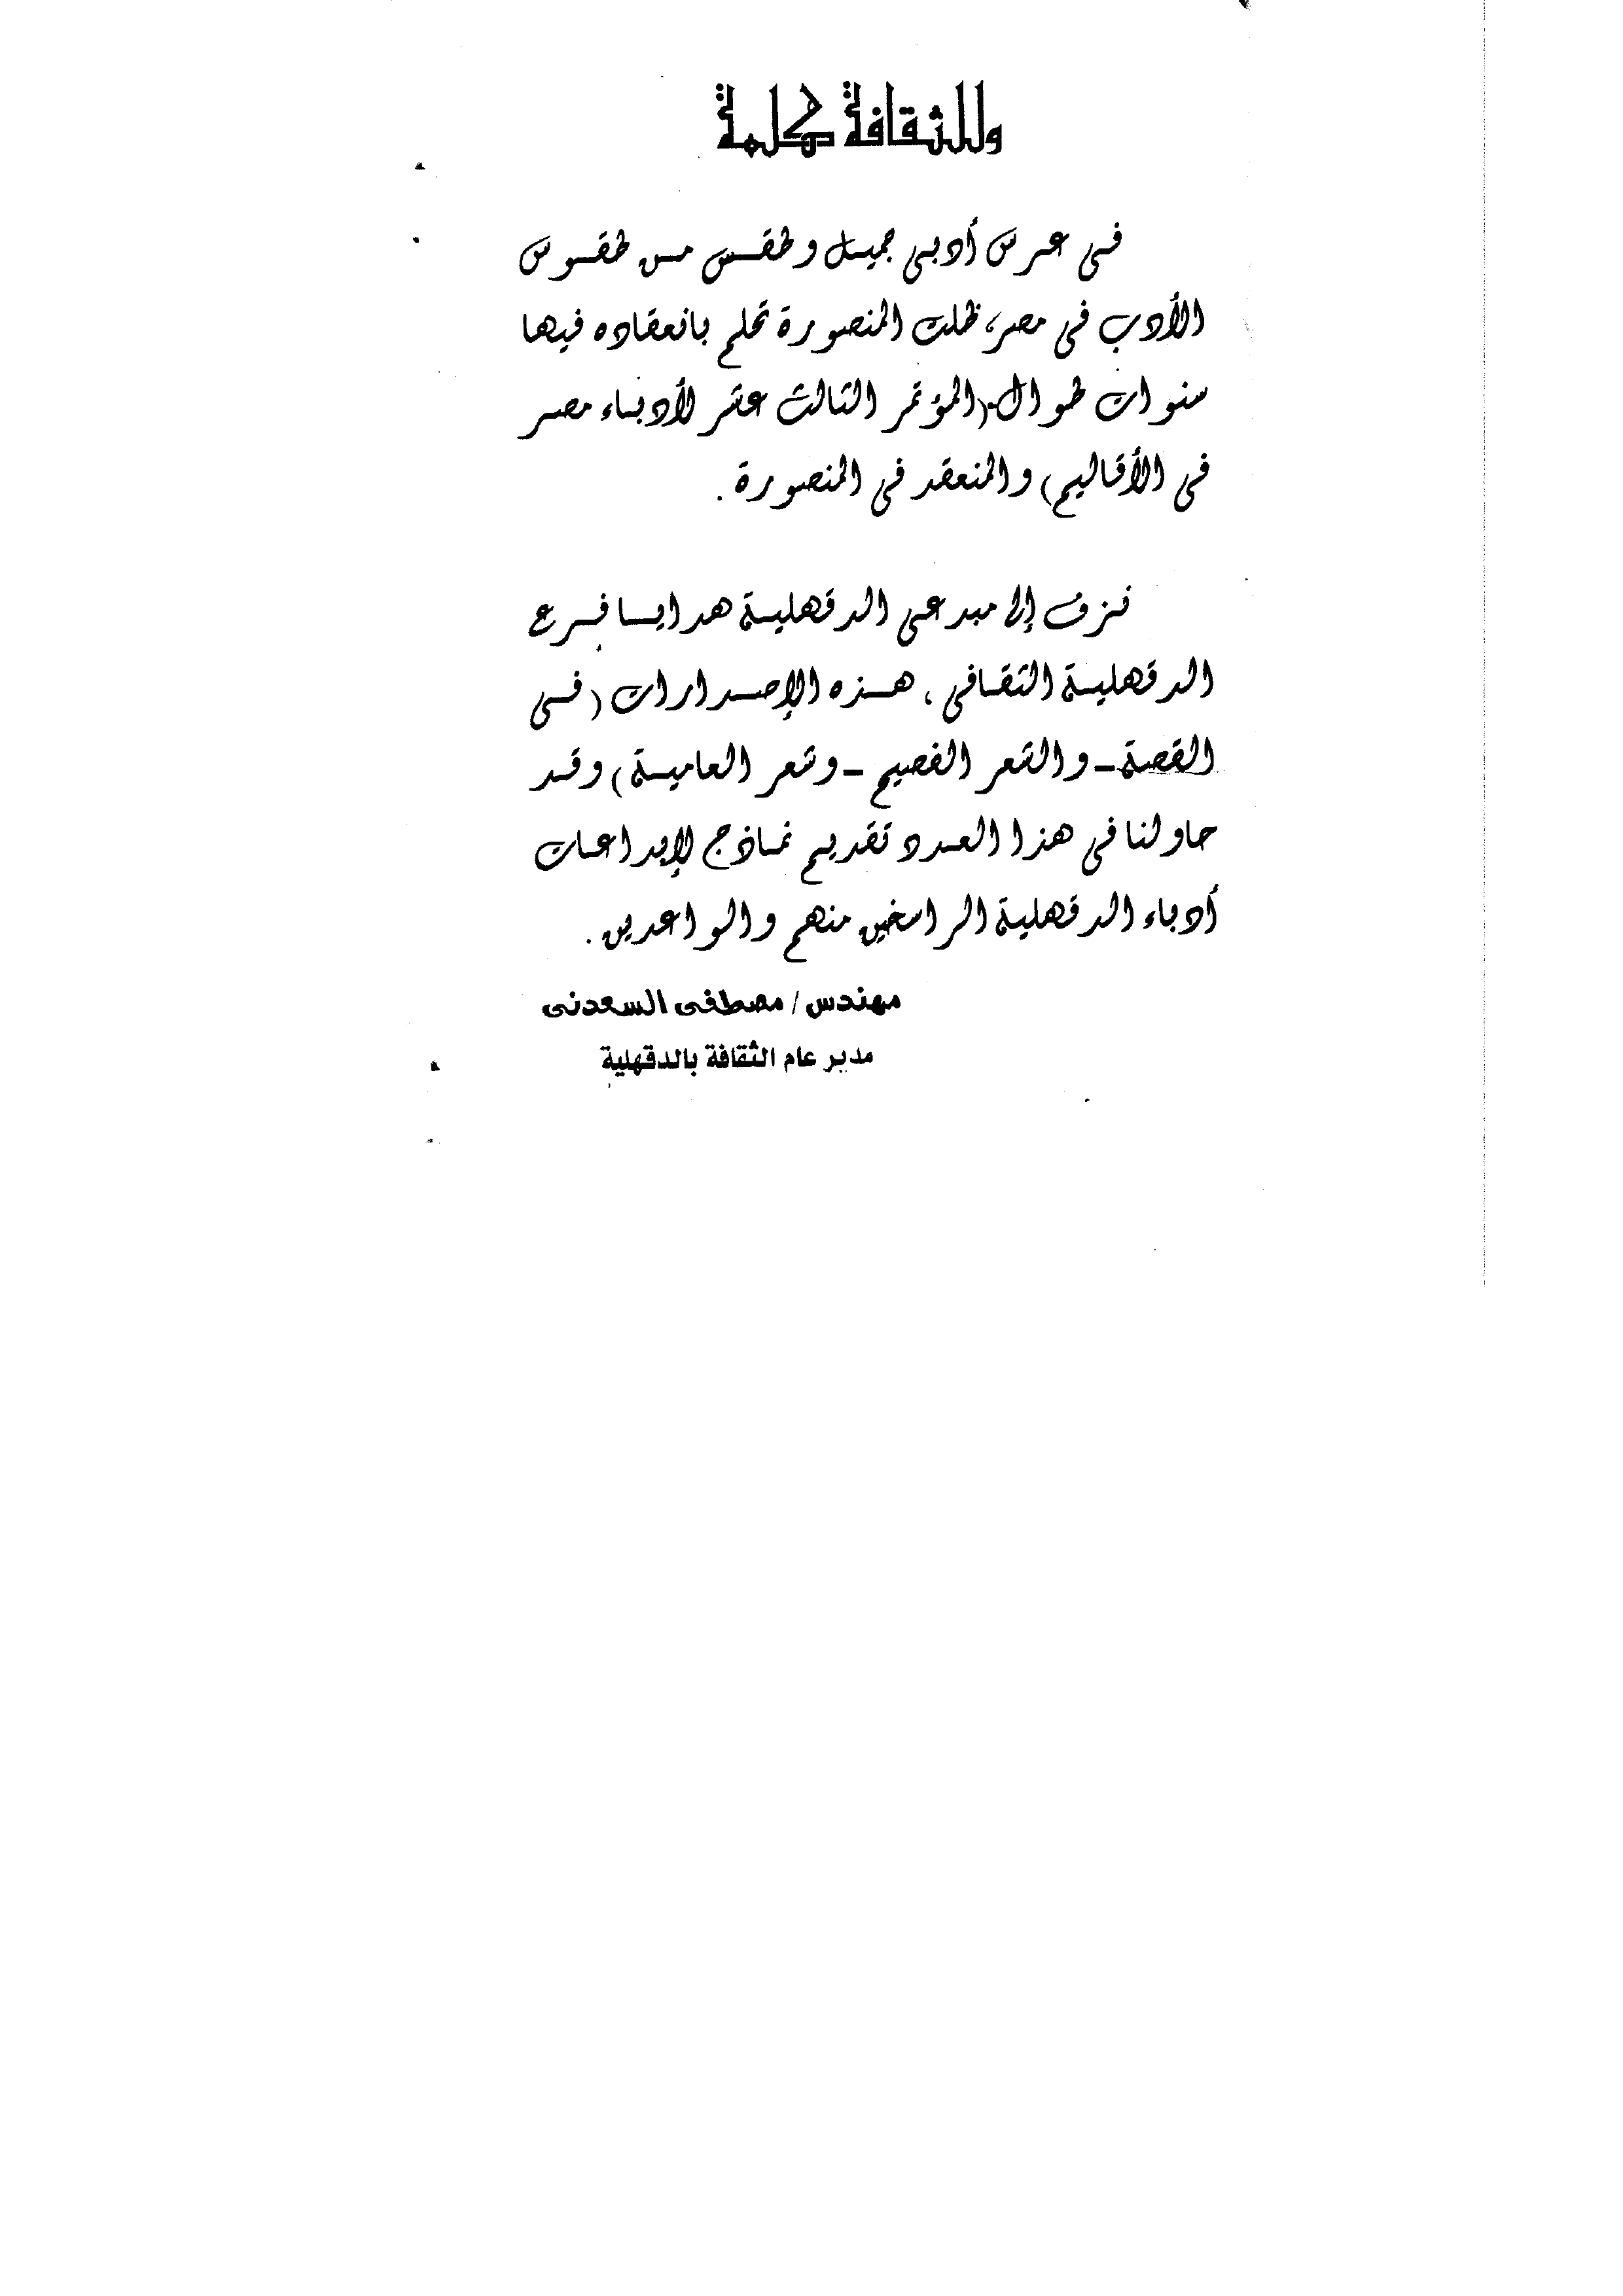 وللثقافة كلمة
فى عرس أدبى جميل وطقس من طقوس
الأدب فى مصر، ظلت المنصورة تحلم بانعقاده فيها
سنوات طوال (المؤتمر الثالث عشر لأدباء مصر
فى الأقاليم) والمنعقد فى المنصورة .
نزف إلى مبدعى الدقهلية هدايا فرع
الدقهلية الثقافى ، هذه الإصدارات (فى
القصة – والشعر الفصيح – وشعر العامية) وقد
حاولنا فى هذا العدد تقديم نماذج لإبداعات
أدباء الدقهلية الراسخين منهم والواعدين .
مهندس / مصطفى السعدنى
مدير عام الثقافة بالدقهلية